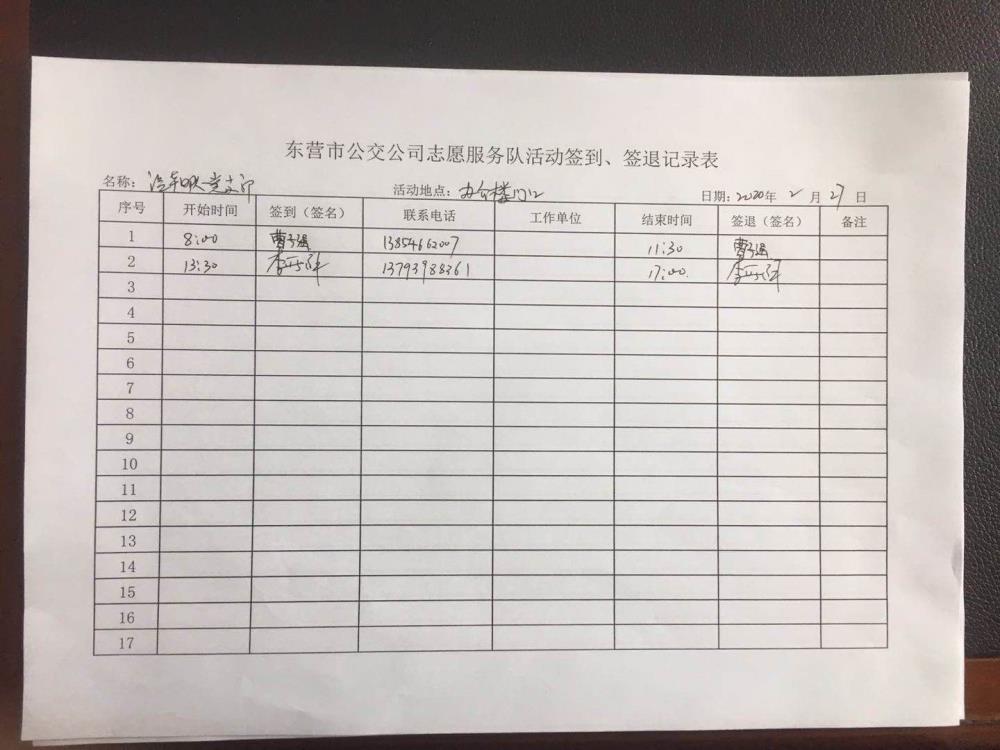 东营市公交公司志愿服务队活动签到、签退记录表
名称：汽车队党支部 活动地点：办公楼门口 日期：2020年 2 月 27 日
序号 开始时间 签到（签名） 联系电话 工作单位 结束时间 签退（签名） 备注
1 8:00 曹子强 13854662007 11:30 曹子强
2 13:30 13793988361 17:00
3
4
5
6
7
8
9
10
11
12
13
14
15
16
17